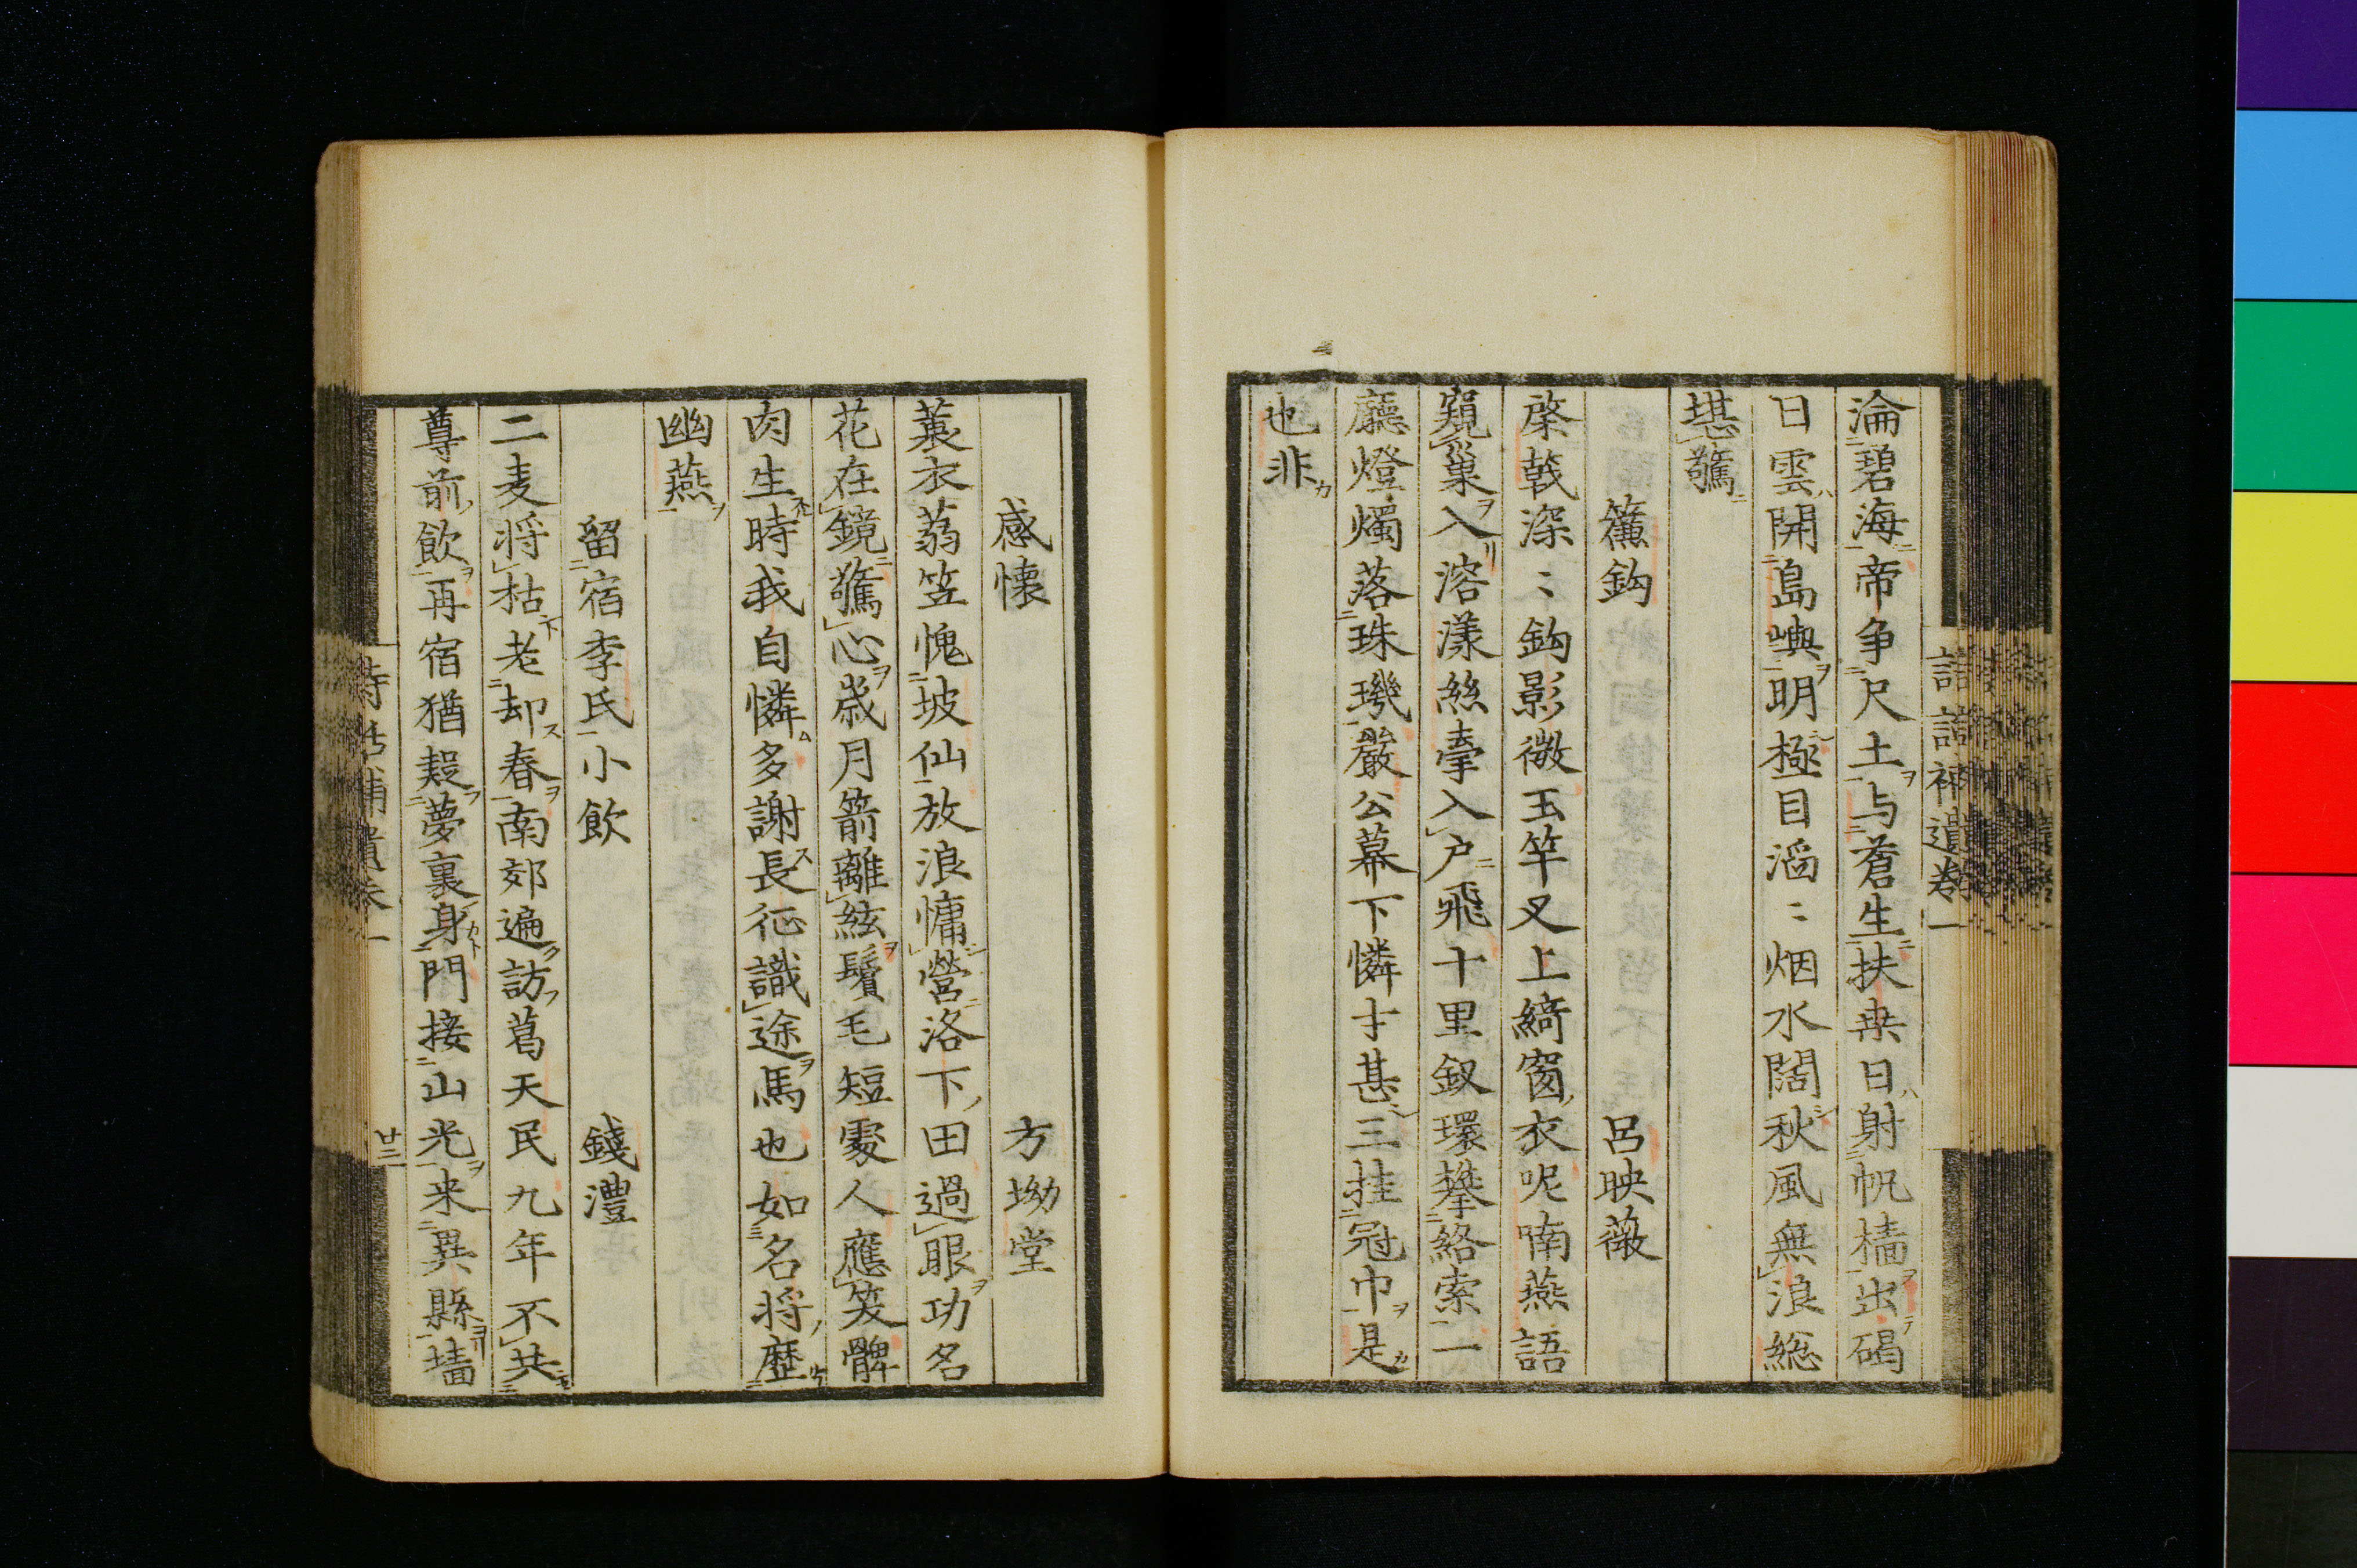 淪碧海帝争尺土与蒼生扶桒日射帆檣出碣
日雲開島嶼明極目滔〻烟水闊秋風無浪総
堪驚
簾鈎 呂映薇
棨戟深〻鈎影微玉竿叉上綺窗衣呢喃燕語
窺巢入溶漾絲牽入户飛十里釵環攀絡索一
廳燈燭落珠璣嚴公幕下憐才甚三挂冠巾是
也非
感懷 方坳堂
蓑衣蒻笠愧坡仙放浪慵營洛下田過眼功名
花在鏡驚心歳月箭離絃鬢毛短處人應笑髀
肉生時我自憐多謝長征識途馬也如名将歴
幽燕
留宿李氏小飲 錢灃
二麦将枯老却春南郊遍訪葛天民九年不共
尊前飲再宿猶疑夢裏身門接山光来異縣墻
詩話補遺卷一
廿三